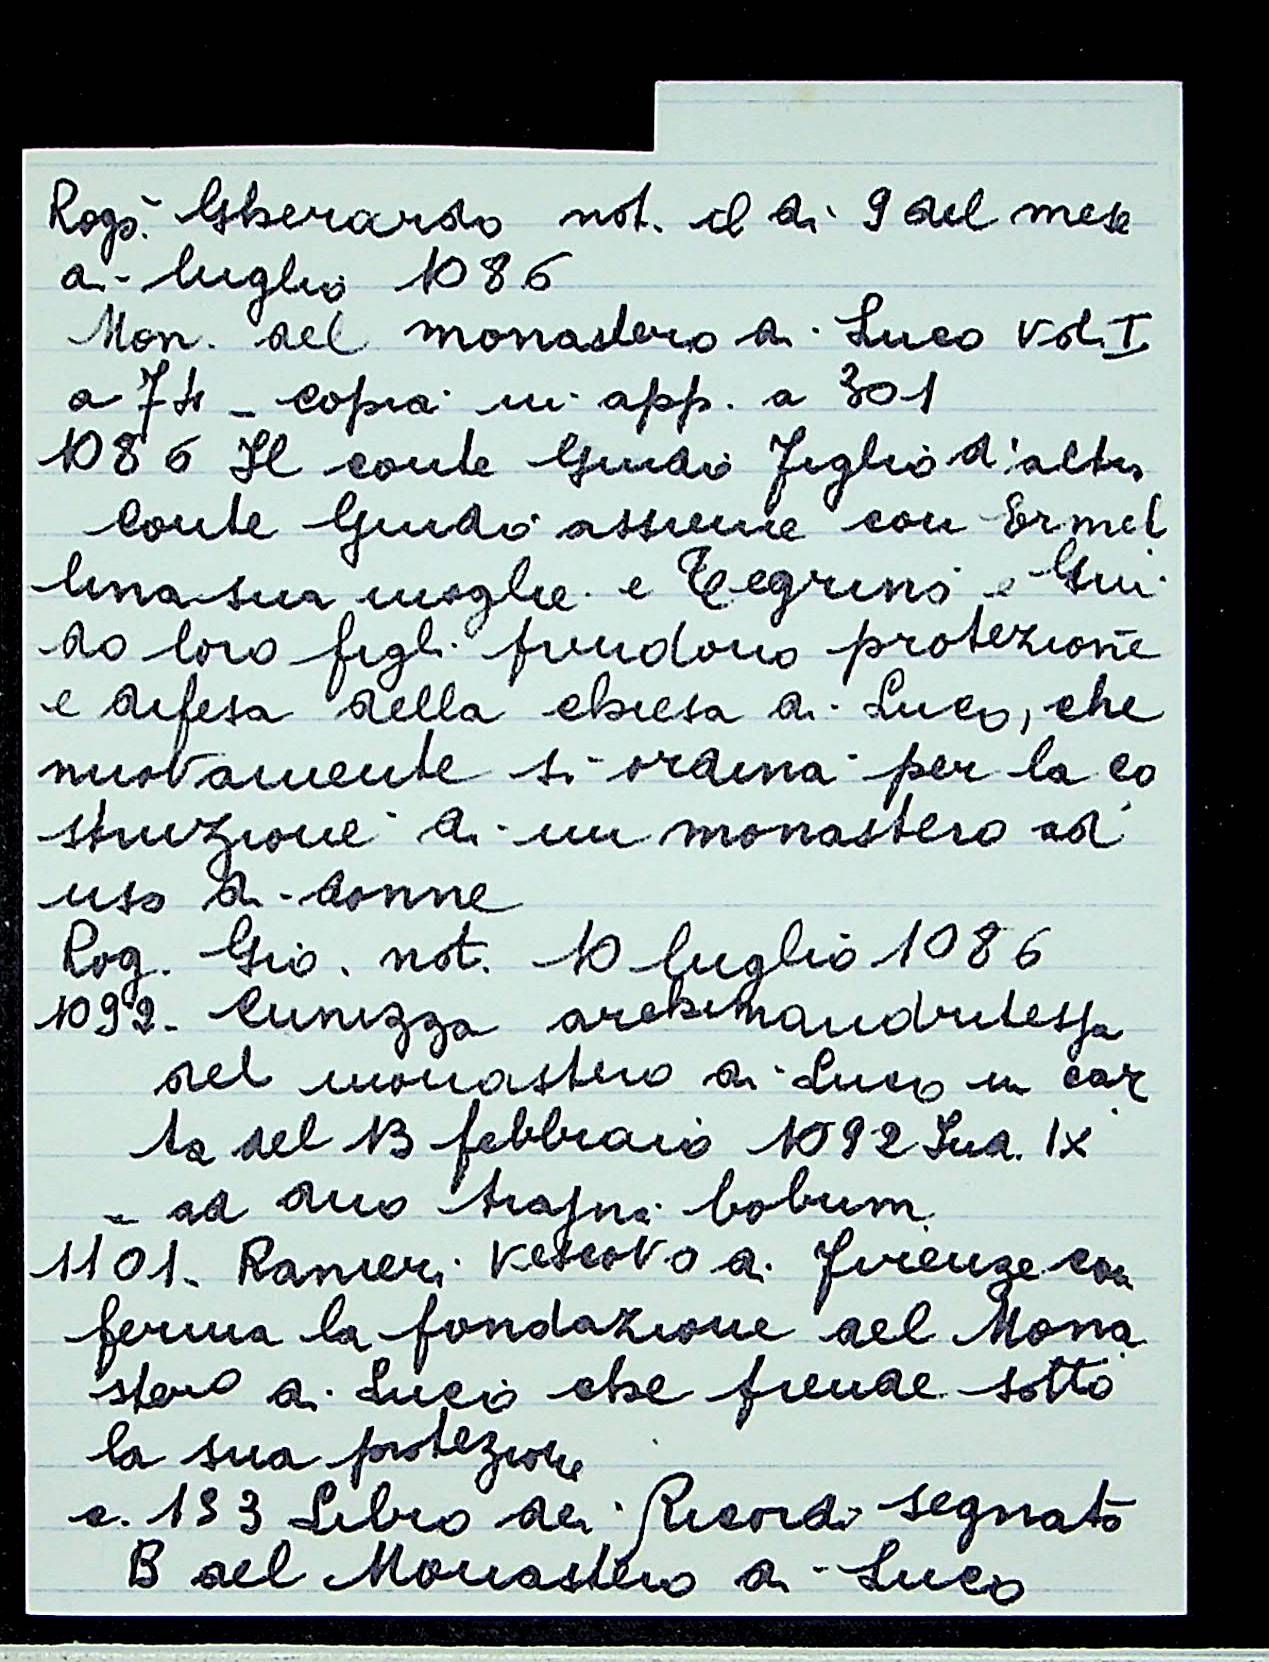 Rogò Gherardo not. il dì 9 del mese
di luglio 1086
Mon. del monastero di Luco vol. I
a 74 - copia in app. a 301
1086 Il conte Guido figlio d'altro
Conte Guido assieme con Ermel
lina sua moglie e Tegrino e Gui
do loro figli prendono protezione
e difesa della chiesa di Luco, che
nuovamente si ordina per la co
struzione di un monastero ad
uso di donne
Rog. Gio. not. 10 luglio 1086
1092. Cunizza archimandritessa
del monastero di Luco in car
ta del 13 febbraio 1092 Ind. IX
- ad duo bobum
1101. Ranieri Vescovo di Firenze con
ferma la fondazione del Mona
stero di Luco che prende sotto
la sua protezione
c. 133 Libro dei Ricordi segnato
B del Monastero di Luco